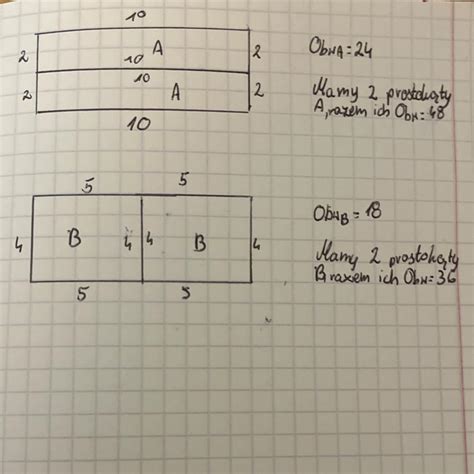 10
2 A 2
10
10
2 A 2
10
Obw_A = 24
Mamy 2 prostokąty
A, razem ich Obw = 48
5 5
4 B 4 4 B 4
5 5
Obw_B = 18
Mamy 2 prostokąty
B, razem ich Obw = 36